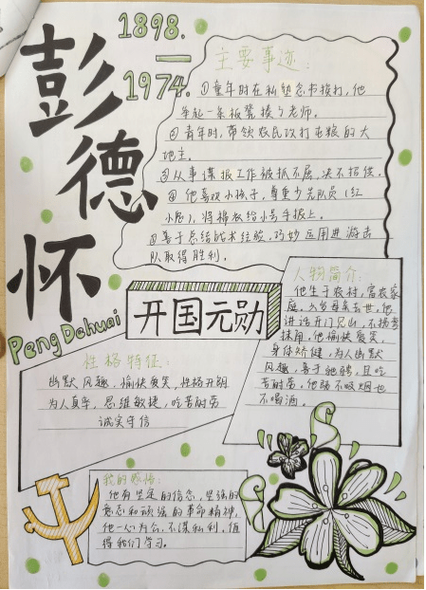 彭德怀
1898.
—
1974.
Peng Dehuai
主要事迹:
①童年时在私塾念书挨打,他
举起一条板凳揍了老师。
②青年时,带领农民攻打屯粮的大
地主。
③从事谍报工作被抓不屈,决不招供。
④他喜欢小孩子,尊重少先队员(红
小鬼),将棉衣给小号手披上。
⑤善于总结战术经验,巧妙运用进游击
队取得胜利。
开国元勋
人物简介:
他生于农村,富农家
庭,八岁母亲去世,他
讲话开门见山,不拐弯
抹角,他愉快爱笑,
身体矫健,为人幽默
风趣,善于驰骋,且吃
苦耐劳,他既不吸烟也
不喝酒。
性格特征:
幽默风趣,愉快爱笑,性格开朗
为人真率,思维敏捷,吃苦耐劳
诚实守信
我的感悟:
他有坚定的信念,坚强的
意志和顽强的革命精神,
他一心为公,不谋私利,值
得我们学习。